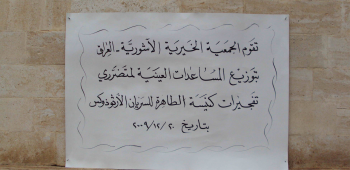 تقوم الجمعية الخيرية الآشورية - العراق
بتوزيع المساعدات العينية لمتضرري
تفجيرات كنيسة الطاهرة للسريان الأرثوذكس
بتاريخ ٢٠٠٩/١٢/٢٠